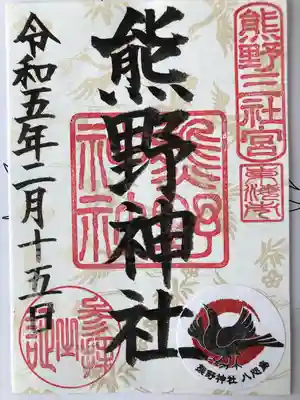 熊野三社宮
東池本
熊野神社
熊野神社
令和五年二月十五日
参拝之証
熊野神社 八咫烏